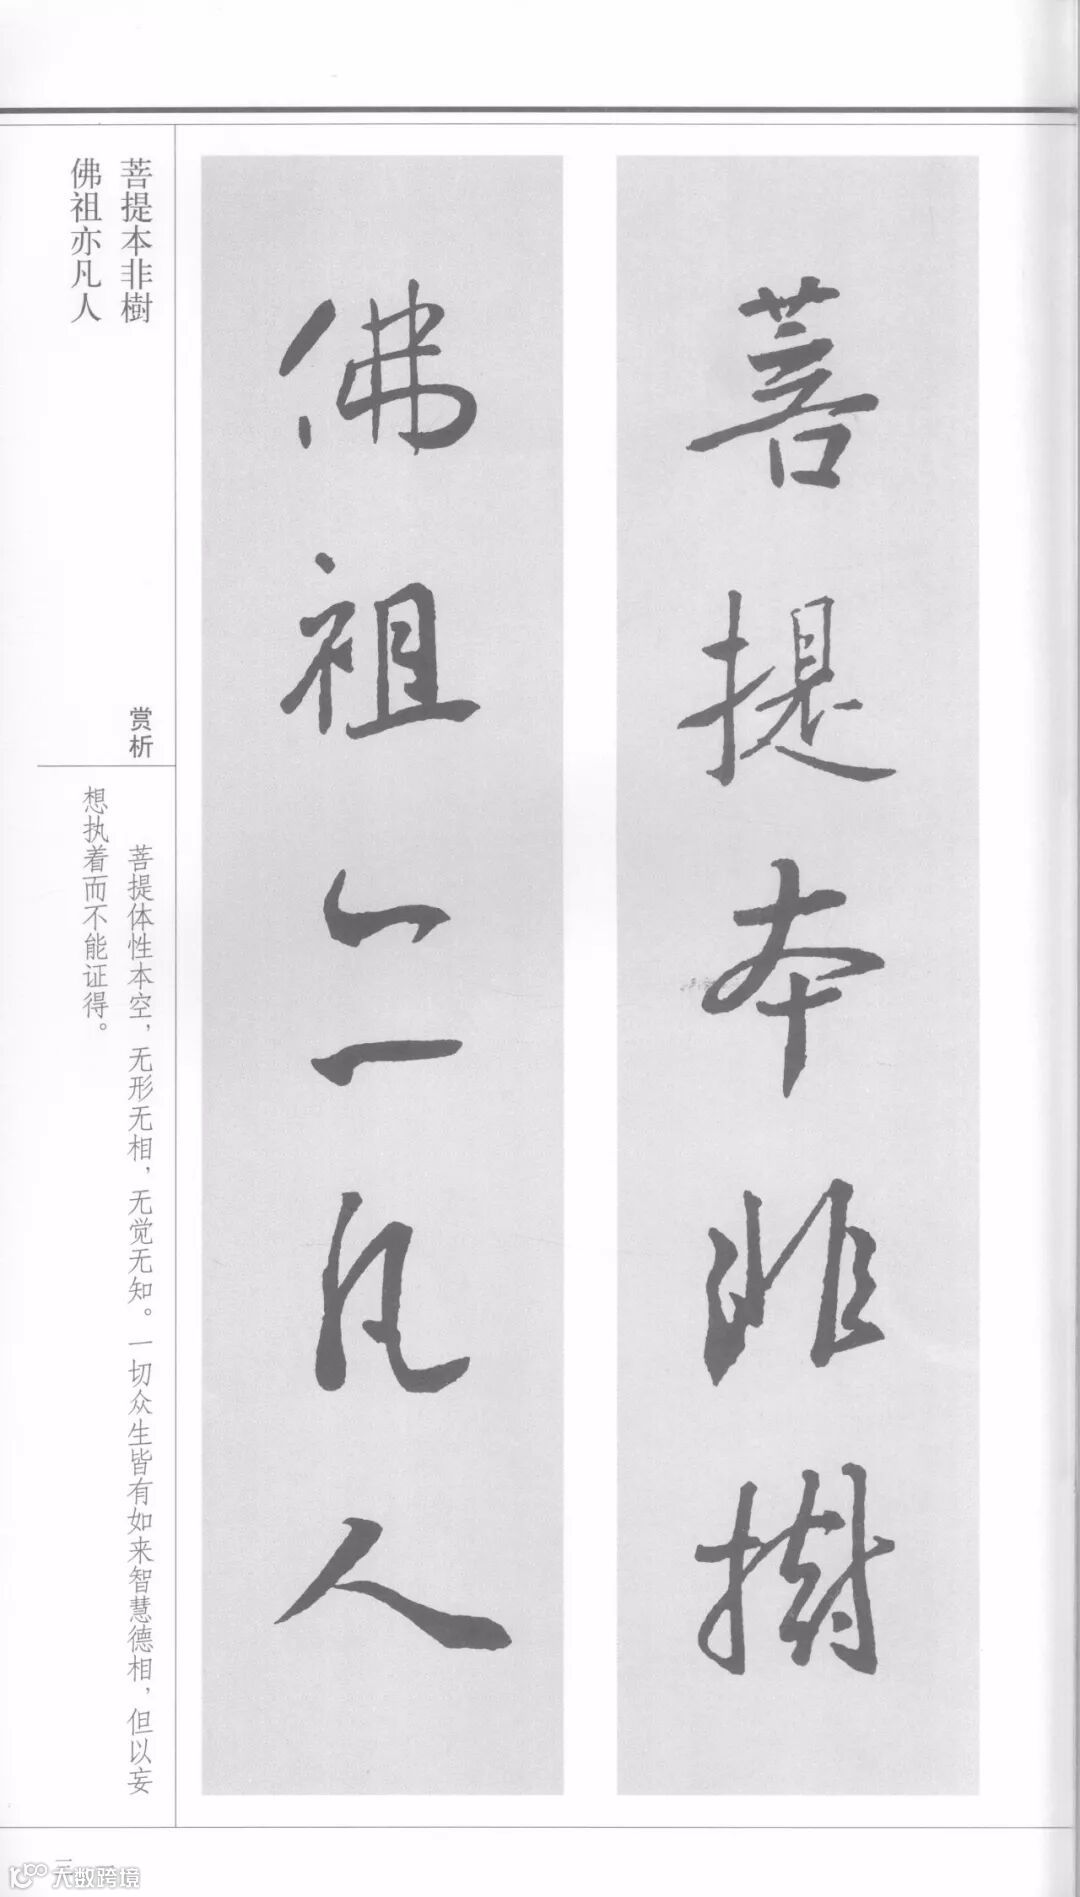 菩提本非樹
佛祖亦凡人
菩提本非樹
佛祖亦凡人
赏析
菩提体性本空，无形无相，无觉无知。一切众生皆有如来智慧德相，但以妄
想执着而不能证得。
大数跨境